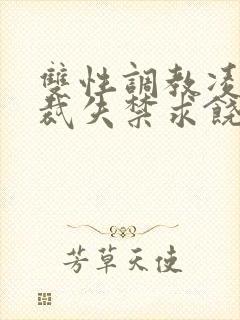 雙性調教凌
裁失禁求饒
芳草天使